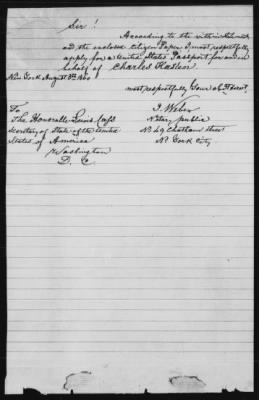 Sir!
According to the within
and the enclosed citizen Paper I most respectfully
apply for a United States Passport for and in
behalf of Charles
New York August 8th 1860
most respectfully Your obt Servt
To
The Honorable Lewis Cass
Secretary of State of the United
States of America
Washington
D. C.
J. Weber
Notary public
No 49 Chatham Street
N. York City